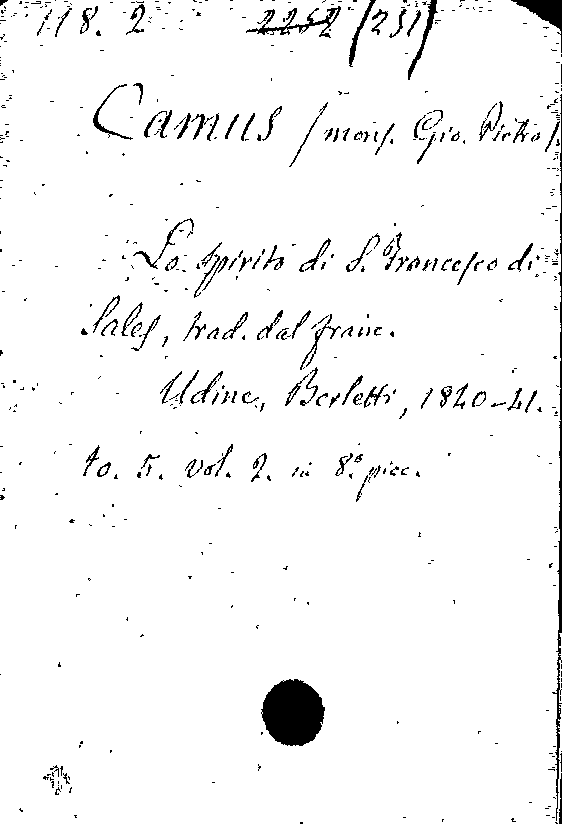 118. 2 2252 (251)
Camus (mons. Gio. Pietro).
Lo spirito di S. Francesco di
Sales, trad. dal franc.
Udine, Berletti, 1840-41.
to. 5. vol. 2. in 8.° picc.